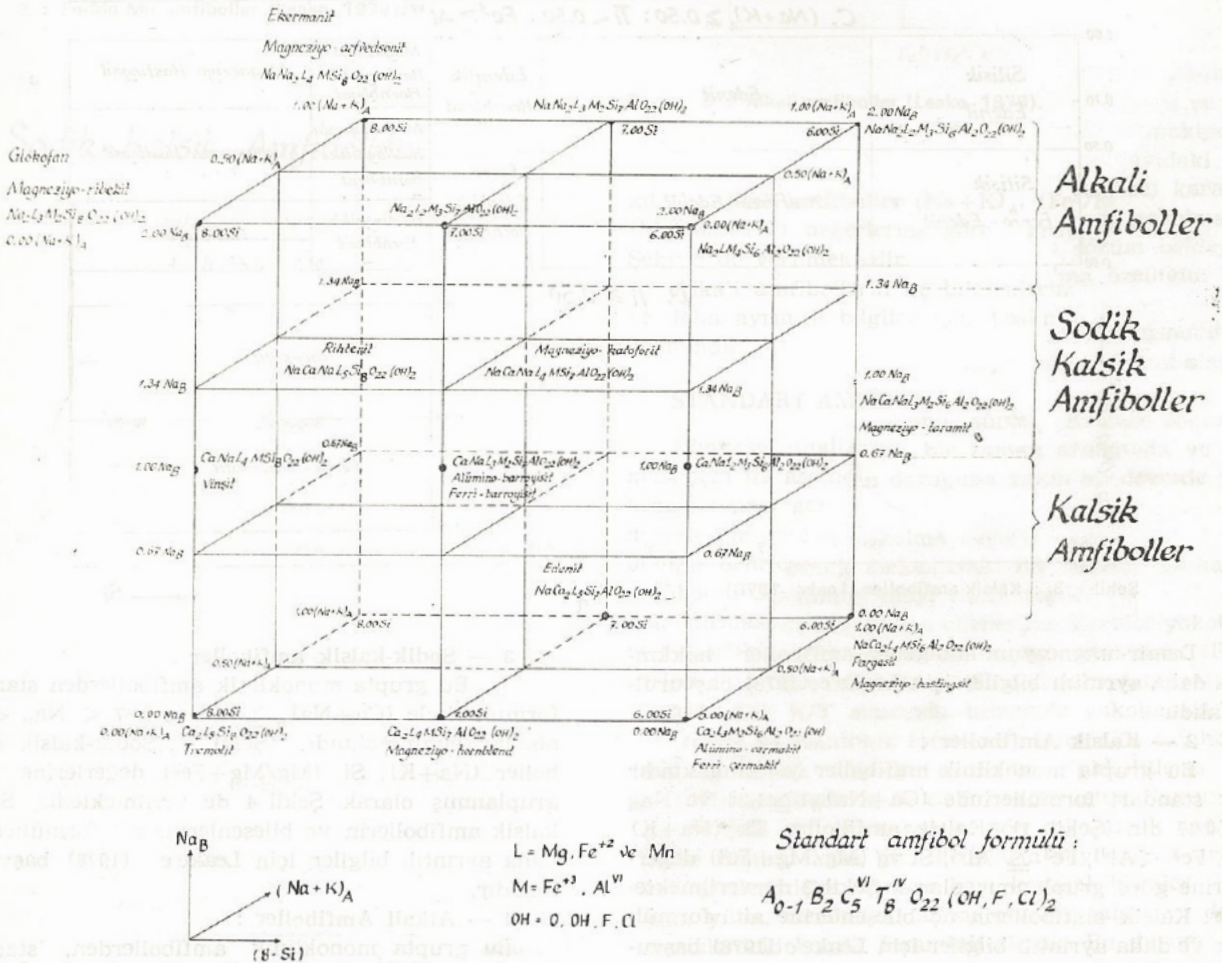 Ekermanit
Magneziyo-arfvedsonit
NaNa₂L₄MSi₈O₂₂(OH)₂
1.00(Na+K)A
8.00Si
NaNa₂L₃M₂Si₇AlO₂₂(OH)₂
7.00Si
1.00(Na+K)A
2.00NaB
6.00Si
NaNa₂L₂M₃Si₆Al₂O₂₂(OH)₂
0.50(Na+K)A
0.50(Na+K)A
Glokofan
Magneziyo-ribekit
Na₂L₃M₂Si₈O₂₂(OH)₂
0.00(Na+K)A
2.00NaB
8.00Si
Na₂L₂M₃Si₇AlO₂₂(OH)₂
7.00Si
2.00NaB
0.00(Na+K)A
6.00Si
Na₂LM₄Si₆Al₂O₂₂(OH)₂
Alkali
Amfiboller
1.34NaB
1.34NaB
Rihterit
NaCaNaL₅Si₈O₂₂(OH)₂
Magneziyo-katoforit
NaCaNaL₄MSi₇AlO₂₂(OH)₂
1.34NaB
1.34NaB
Sodik
Kalsik
Amfiboller
1.00NaB
NaCaNaL₃M₂Si₆Al₂O₂₂(OH)₂
Magneziyo-taramit
0.67NaB
0.67NaB
1.00NaB
CaNaL₄MSi₈O₂₂(OH)₂
Vinsit
CaNaL₃M₂Si₇AlO₂₂(OH)₂
Alümino-barroyisit
Ferri-barroyisit
1.00NaB
CaNaL₂M₃Si₆Al₂O₂₂(OH)₂
0.67NaB
0.67NaB
Kalsik
Amfiboller
Edenit
NaCa₂L₅Si₇AlO₂₂(OH)₂
1.00(Na+K)A
8.00Si
7.00Si
6.00Si
0.00NaB
1.00(Na+K)A
NaCa₂L₄MSi₆Al₂O₂₂(OH)₂
Pargasit
Magneziyo-hastingsit
0.50(Na+K)A
0.50(Na+K)A
0.00NaB
8.00Si
0.00(Na+K)A
Ca₂L₅Si₈O₂₂(OH)₂
Tremolit
7.00Si
Ca₂L₄MSi₇AlO₂₂(OH)₂
Magneziyo-hornblend
6.00Si
0.00NaB
0.00(Na+K)A
Ca₂L₃M₂Si₆Al₂O₂₂(OH)₂
Alümino-çermakit
Ferri-çermakit
NaB
(Na+K)A
(8-Si)
L = Mg, Fe⁺² ve Mn
M = Fe⁺³, Al^VI
OH = O, OH, F, Cl
Standart amfibol formülü :
A₀₋₁ B₂ C₅^VI T₈^IV O₂₂ (OH, F, Cl)₂